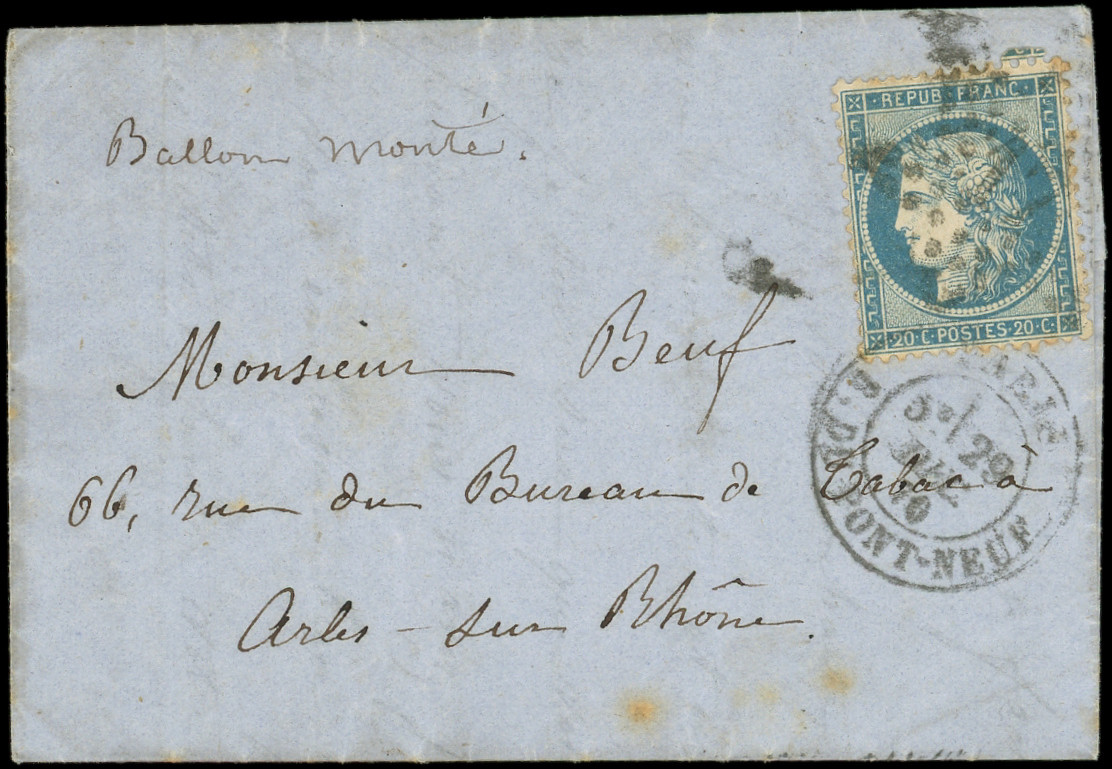 REPUB·FRANC·
Ballon monté.
20·C·POSTES·20·C·
Monsieur Beuf
PARIS
R. DU PONT-NEUF
5e/ 29
DEC
70
66, rue du Bureau de Tabac à
Arles-sur Rhône.